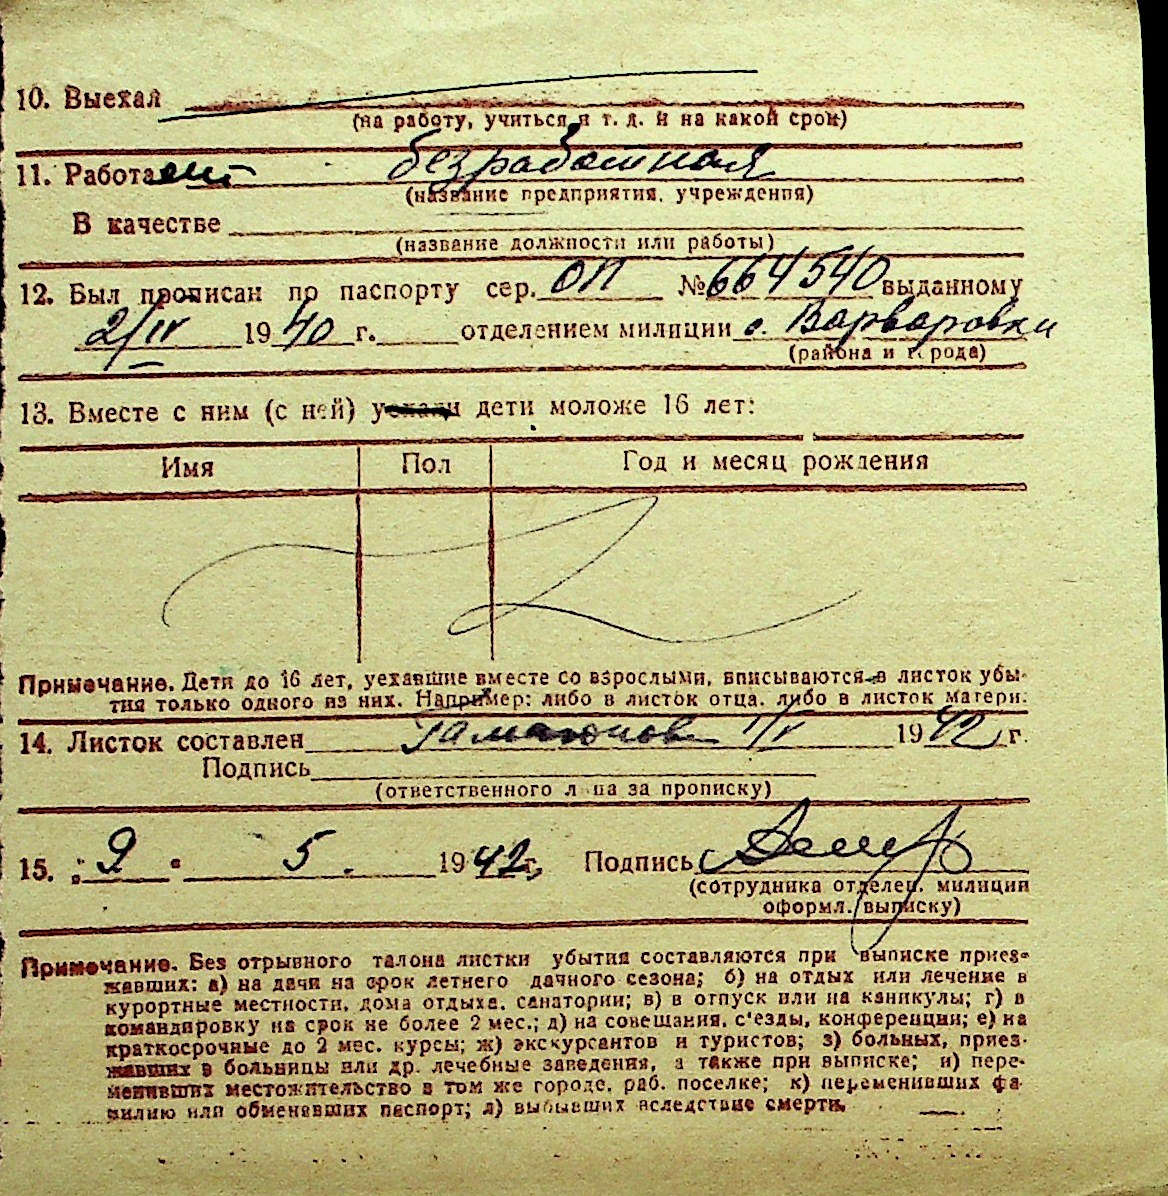 10. Выехал
(на работу, учиться и т. д. и на какой срок)
11. Работает безработная
(название предприятия, учреждения)
В качестве
(название должности или работы)
12. Был прописан по паспорту сер. ОП № 664540 выданному
2/IV 1940 г. отделением милиции с. Варваровки
(района и города)
13. Вместе с ним (с ней) уехали дети моложе 16 лет:
Имя Пол Год и месяц рождения
Примечание. Дети до 16 лет, уехавшие вместе со взрослыми, вписываются в листок убы-
тия только одного из них. Например: либо в листок отца, либо в листок матери.
14. Листок составлен 1/V 1942 г.
Подпись
(ответственного лица за прописку)
15. "2" 5. 1942 г. Подпись
(сотрудника отделен. милиции
оформл. выписку)
Примечание. Без отрывного талона листки убытия составляются при выписке приез-
жавших: а) на дачи на срок летнего дачного сезона; б) на отдых или лечение в
курортные местности, дома отдыха, санатории; в) в отпуск или на каникулы; г) в
командировку на срок не более 2 мес.; д) на совещания, с'езды, конференции; е) на
краткосрочные до 2 мес. курсы; ж) экскурсантов и туристов; з) больных, приез-
жавших в больницы или др. лечебные заведения, а также при выписке; и) пере-
менивших местожительство в том же городе, раб. поселке; к) переменивших фа-
милию или обменявших паспорт; л) выбывших вследствие смерти.